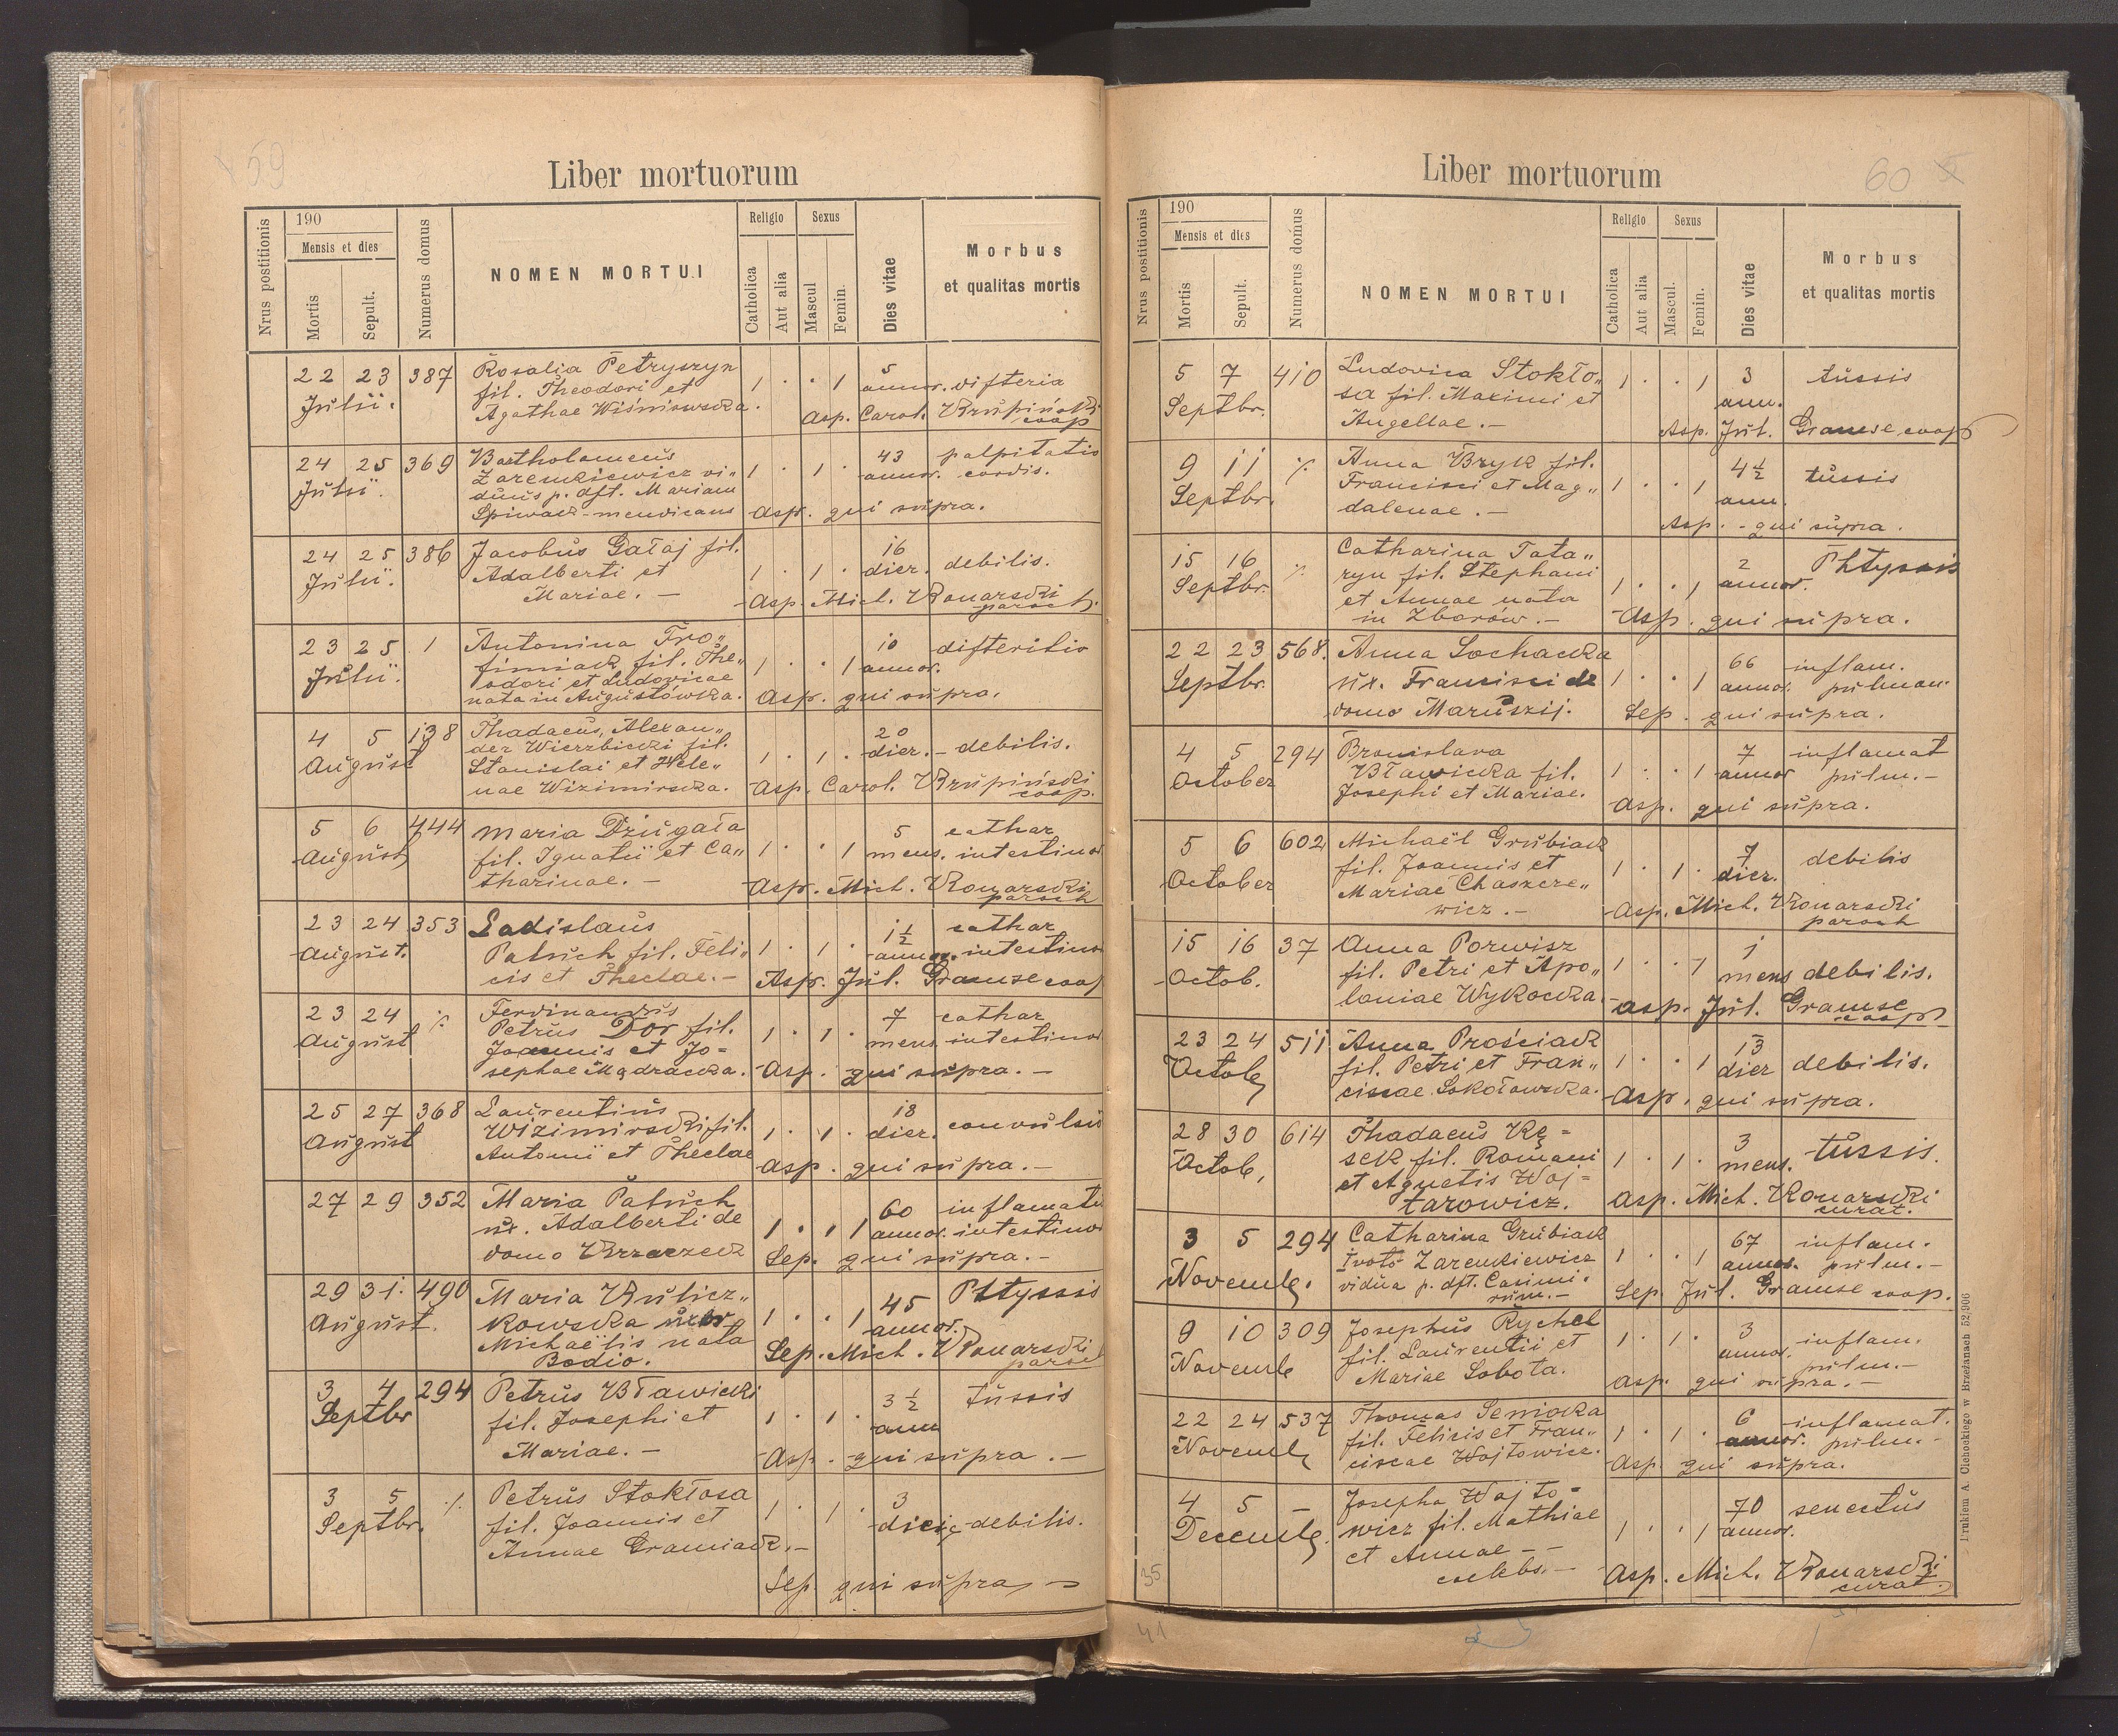 59
Liber mortuorum
Nrus postitionis
190
Mensis et dies
Mortis
Sepult.
Numerus domus
NOMEN MORTUI
Religio
Catholica
Aut alia
Sexus
Mascul
Femin.
Dies vitae
Morbus
et qualitas mortis
22 23 387 Rosalia Petryszyn 1 · · 1 5
Julii. fil. Theodori et annor. difteria
Agathae Wiśniowska. Asp. Carol. Krupiński
coop
24 25 369 Bartholomeus 1 · 1 · 43 palpitatio
Julii. Zarenkiewicz vi„ annor. cordis.
duus p. dft. Mariam
Spiwack - mendicans Asp. qui supra.
24 25 386 Jacobus Gałaj fil. 16
Julii. Adalberti et 1 · 1 · dier. debilis.
Mariae. — Asp. Mich. Konarski
paroch.
23 25 1 Antonina Tro„ 10 difteritis
Julii. fimiak fil. The„ 1 · · 1 annor.
odori et Ludovicae
nata in Augustówka. Asp. qui supra.
4 5 138 Thadaeus, Alexan„ 20
August der Wierzbicki fil. 1 · 1 · dier. - debilis.
Stanislai et Hele„
nae Wizimirska. Asp. Carol. Krupiński
coop.
5 6 444 Maria Dziugała 5 cathar
August fil. Ignatii et Ca„ 1 · · 1 mens. intestinor
tharinae. — Asp. Mich. Konarski
paroch
23 24 353 Ladislaus 1½ cathar
August. Paluch fil. Feli„ 1 · 1 · annor. intestinor
cis et Theclae. — Asp. Jul. Gramse coop
23 24 ·/· Ferdinandus 7 cathar
August Petrus Dor fil. 1 · 1 · mens. intestinor
Joannis et Jo=
sephae Mądracka. Asp. qui supra. —
25 27 368 Laurentius 18
August Wizimirski fil. 1 · 1 · dier. convulsio
Antonii et Theclae Asp. qui supra. —
27 29 352 Maria Paluch 60 inflamatio
ux. Adalberti de 1 · · 1 annor. intestinor
domo Krzaczek Sep. qui supra. —
29 31. 490 Maria Kulicz„ 45 Phtyssis
August. kowska uxor 1 · · 1 annor.
Michaëlis nata Sep. Mich. Konarski
Bodio. paroch
3 4 294 Petrus Bławicki 3½ tussis
Septbr fil. Josephi et 1 · 1 · ann
Mariae. — Asp. qui supra. —
3 5 ·/· Petrus Stokłosa 3
Septbr. fil. Joannis et 1 · 1 · debilis.
Annae Gramiak. —
Sep. qui supra —
60
Liber mortuorum
Nrus postitionis
190
Mensis et dies
Mortis
Sepult.
Numerus domus
NOMEN MORTUI
Religio
Catholica
Aut alia
Sexus
Mascul.
Femin.
Dies vitae
Morbus
et qualitas mortis
5 7 410 Ludovica Stokło„ 1 · · 1 3 tussis
Septbr. sa fil. Maximi et ann.
Angellae. — Asp. Jul. Gramse coop
9 11 ·/· Anna Bryk fil. 4½ tussis
Septbr. Francisci et Mag„ 1 · · 1 ann.
dalenae. — Asp. - qui supra.
15 16 ·/· Catharina Tata„ 2 Phtyssis
Septbr. ryn fil. Stephani 1 · · 1 annor.
et Annae nata
in Zborów. — Asp. qui supra.
22 23 568. Anna Sochacka 66 inflam.
Septbr. ux. Francisci de 1 · · 1 annor. pulmon.
domo Maruszij. Sep. qui supra.
4 5 294 Bronislava 7 inflamat
October Bławicka fil. 1 · · 1 annor pulm. —
Josephi et Mariae. Asp. qui supra.
5 6 602 Michaël Grubiak 7
October fil. Joannis et 1 · 1 · dier. debilis
Mariae Chaszcze„
wicz. — Asp. Mich. Konarski
paroch
15 16 37 Anna Porwisz 1
Octob. fil. Petri et Apo„ 1 · · 1 mens debilis.
loniae Wykocka. Asp. Jul. Gramse
coop
23 24 511 Anna Prościak 13
Octob. fil. Petri et Fran„ 1 · · 1 dier debilis.
ciscae Sokołowska. Asp. qui supra.
28 30 614 Thadaeus Kę= 3
Octob. sek fil. Romani 1 · 1 · mens. tussis.
et Agnetis Woj=
tarowicz. Asp. Mich. Konarski
curat.
3 5 294 Catharina Grubiak 67 inflam.
Novemb. Ivoto Zarenkiewicz 1 · · 1 annor. pulm. —
vidua p. dft. Casimi„
rum. — Sep. Jul. Gramse coop.
9 10 309 Josephus Rychel 3
Novemb fil. Laurentii et 1 · 1 · annor. inflam.
Mariae Sobota. pulm. —
Asp. qui supra. —
22 24 537 Thomas Senioka 6 inflamat.
Novemb fil. Felicis et Fran„ 1 · 1 · annor. pulm. -
ciscae Wojtowicz. Asp. qui supra.
4 5 — Josepha Wojto= 70 senectus
Decemb. wicz fil. Mathiae 1 · · 1 annor.
et Annae — —
caelebs. — Asp. Mich. Konarski
curat.
35
41
Drukiem A. Cichockiego w Brzeżanach 52/906